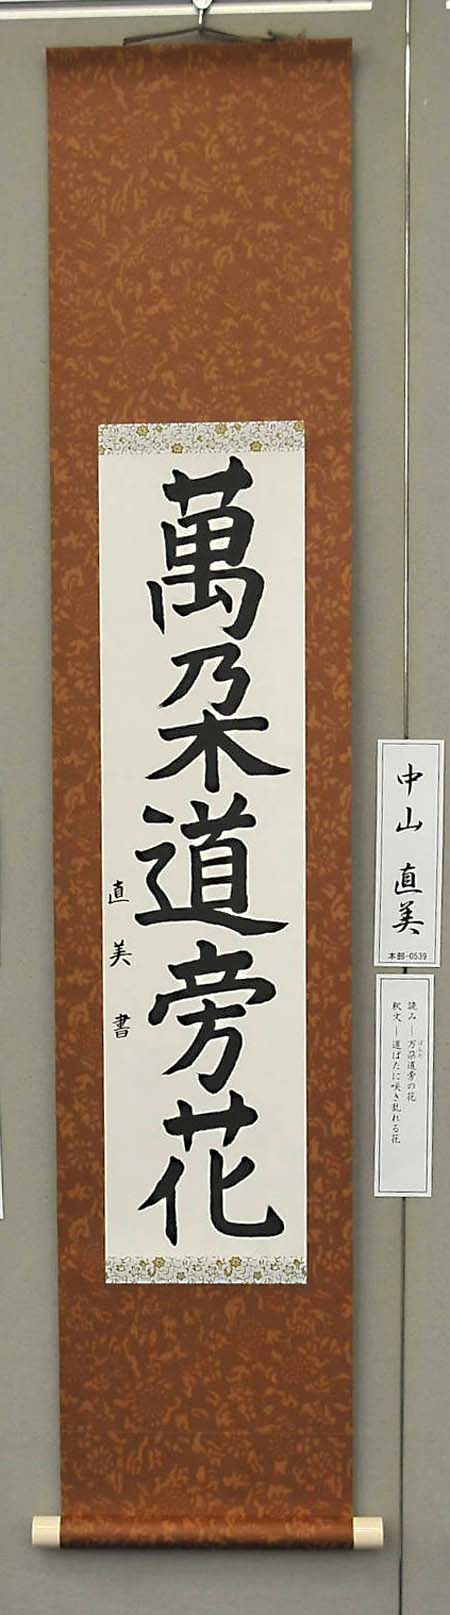 萬朶道旁花
直美書
中山 直美
本部-0539
読み－万朶道旁の花
釈文－道ばたに咲き乱れる花